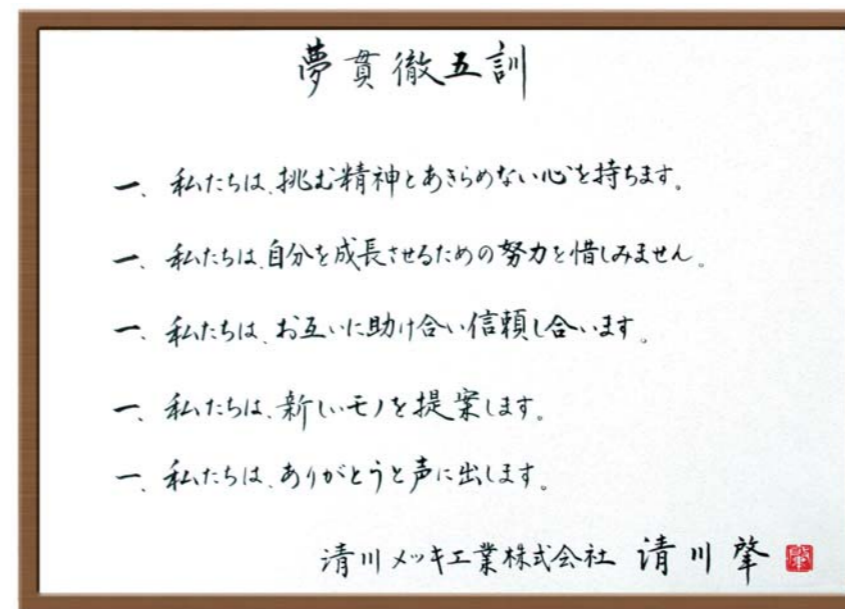 夢貫徹五訓
一、私たちは、挑む精神とあきらめない心を持ちます。
一、私たちは、自分を成長させるための努力を惜しみません。
一、私たちは、お互いに助け合い信頼し合います。
一、私たちは、新しいモノを提案します。
一、私たちは、ありがとうと声に出します。
清川メッキ工業株式会社 清川肇
肇